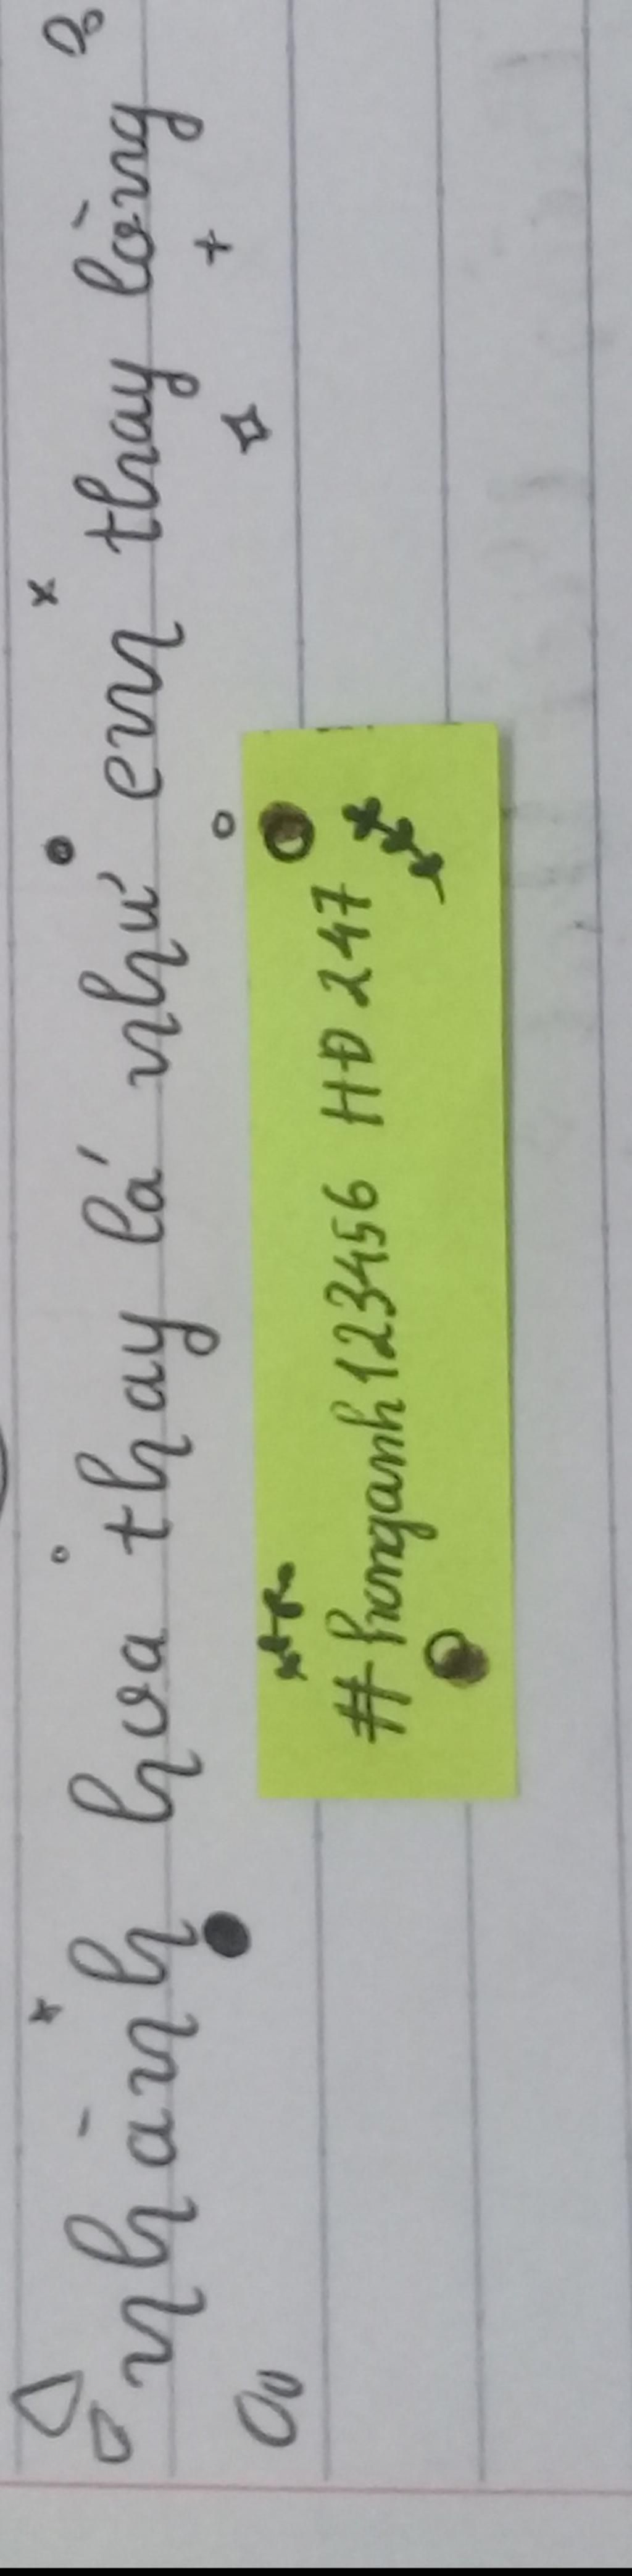 nhành hoa thay lá như em thay lòng
#hronganh123456 HD 247